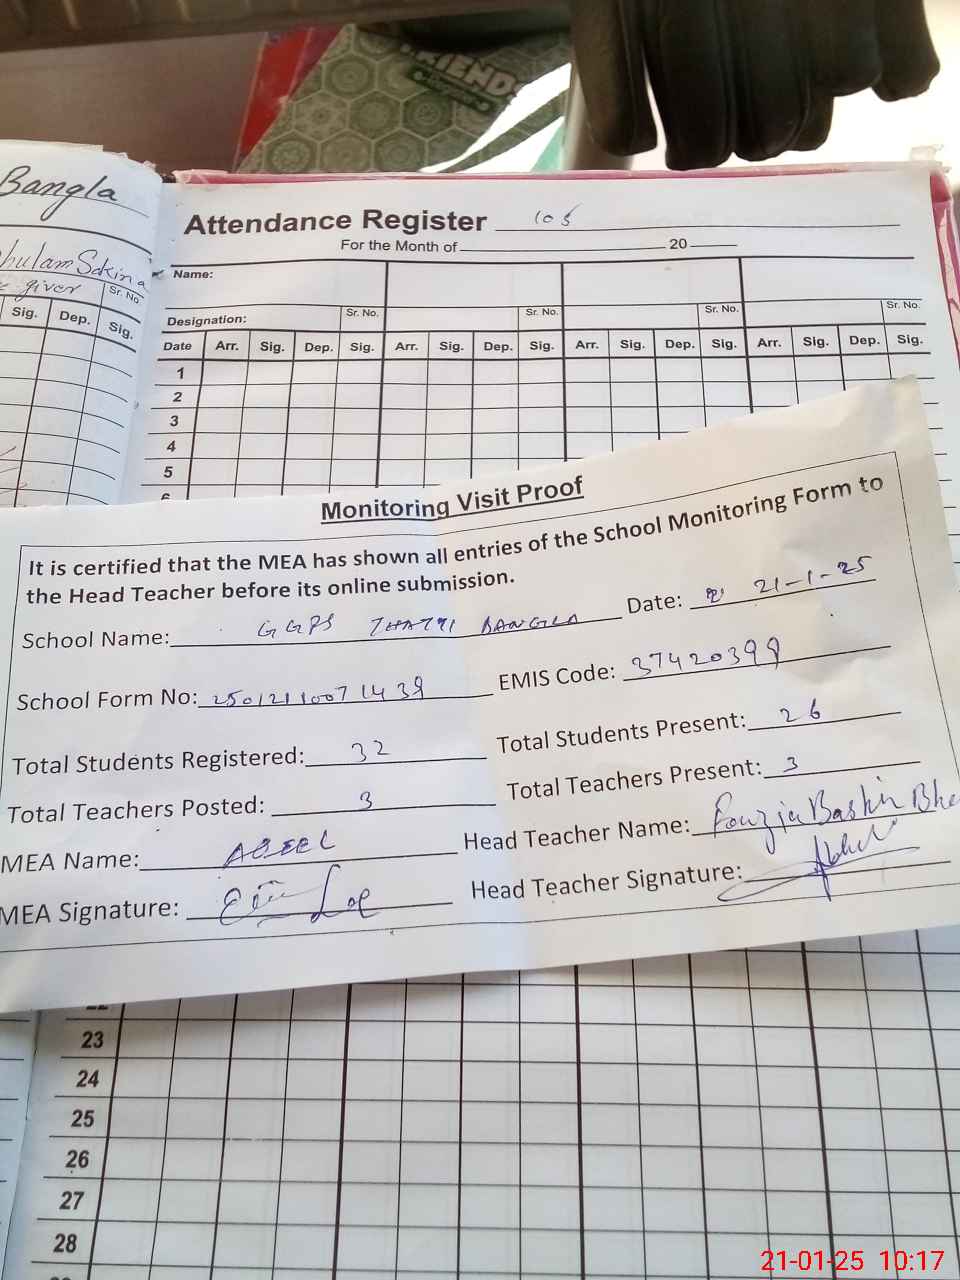 FRIENDS
Bangla
Sakina
giver
Sr. No.
Sig. Dep. Sig.
Attendance Register 105
For the Month of 20
Name:
Designation: Sr. No. Sr. No. Sr. No. Sr. No.
Date Arr. Sig. Dep. Sig. Arr. Sig. Dep. Sig. Arr. Sig. Dep. Sig. Arr. Sig. Dep. Sig.
1
2
3
4
5
6
Monitoring Visit Proof
It is certified that the MEA has shown all entries of the School Monitoring Form to
the Head Teacher before its online submission.
School Name: GGPS THATHI BANGLA Date: 21-1-25
School Form No: 25012110071439 EMIS Code: 37420399
Total Students Registered: 32 Total Students Present: 26
Total Teachers Posted: 3 Total Teachers Present: 3
MEA Name: AQEEL Head Teacher Name: Fouzia Bashir
MEA Signature: Head Teacher Signature:
22
23
24
25
26
27
28
21-01-25 10:17